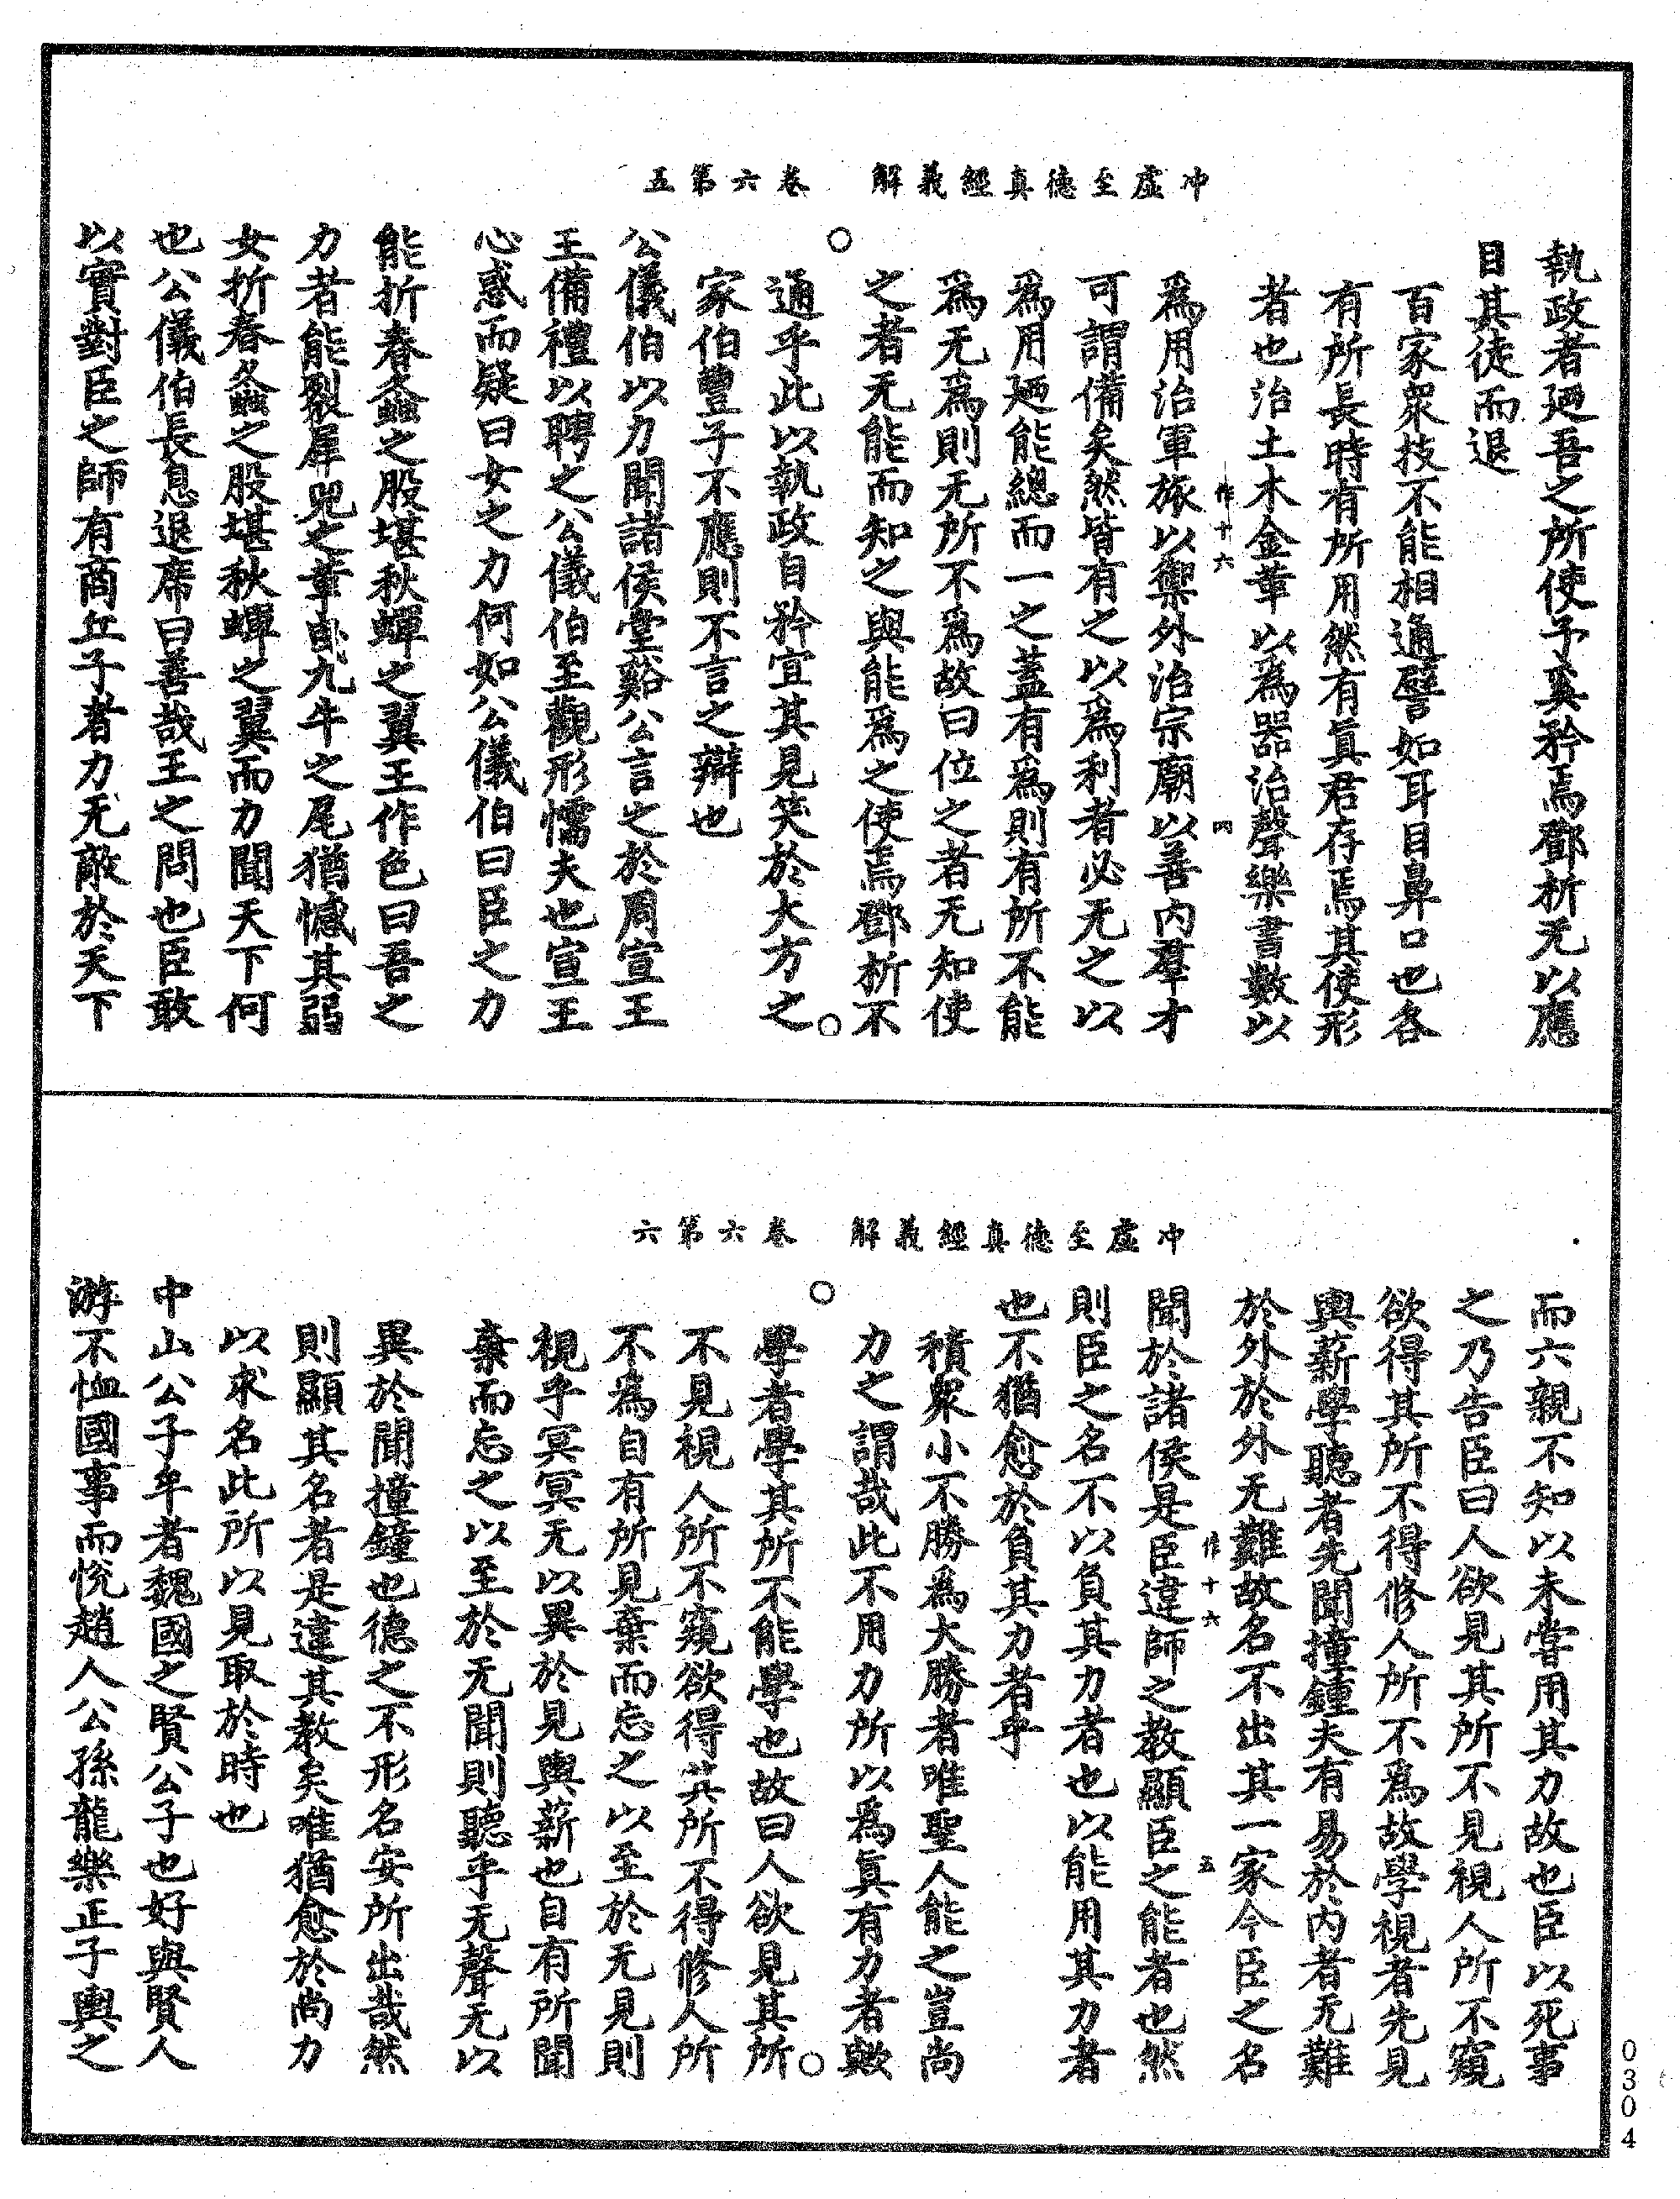 冲虛至德真經義解　卷六第五
執政者廼吾之所使予奚矜焉鄧析无以應
目其徒而退
百家衆技不能相通譬如耳目鼻口也各
有所長時有所用然有真君存焉其使形
者也治土木金革以為器治聲樂書數以
作十六　四
為用治軍旅以禦外治宗廟以善內羣才
可謂備矣然皆有之以為利者必无之以
為用廼能總而一之蓋有為則有所不能
為无為則无所不為故曰位之者无知使
之者无能而知之與能為之使焉鄧析不
通乎此以執政自矜宜其見笑於大方之
家伯豐子不應則不言之辯也
公儀伯以力聞諸侯堂谿公言之於周宣王
王備禮以聘之公儀伯至觀形懦夫也宣王
心惑而疑曰女之力何如公儀伯曰臣之力
能折春螽之股堪秋蟬之翼王作色曰吾之
力者能裂犀兕之革曳九牛之尾猶憾其弱
女折春螽之股堪秋蟬之翼而力聞天下何
也公儀伯長息退席曰善哉王之問也臣敢
以實對臣之師有商丘子者力无敵於天下
冲虛至德真經義解　卷六第六
而六親不知以未嘗用其力故也臣以死事
之乃告臣曰人欲見其所不見視人所不窺
欲得其所不得修人所不為故學視者先見
輿薪學聽者先聞撞鐘夫有易於內者无難
於外於外无難故名不出其一家今臣之名
作十六　五
聞於諸侯是臣違師之教顯臣之能者也然
則臣之名不以負其力者也以能用其力者
也不猶愈於負其力者乎
積衆小不勝為大勝者唯聖人能之豈尚
力之謂哉此不用力所以為真有力者歟
學者學其所不能學也故曰人欲見其所
不見視人所不窺欲得其所不得修人所
不為自有所見棄而忘之以至於无見則
視乎冥冥无以異於見輿薪也自有所聞
棄而忘之以至於无聞則聽乎无聲无以
異於聞撞鐘也德之不形名安所出哉然
則顯其名者是違其教矣唯猶愈於尚力
以求名此所以見取於時也
中山公子牟者魏國之賢公子也好與賢人
游不恤國事而悅趙人公孫龍樂正子輿之
0304